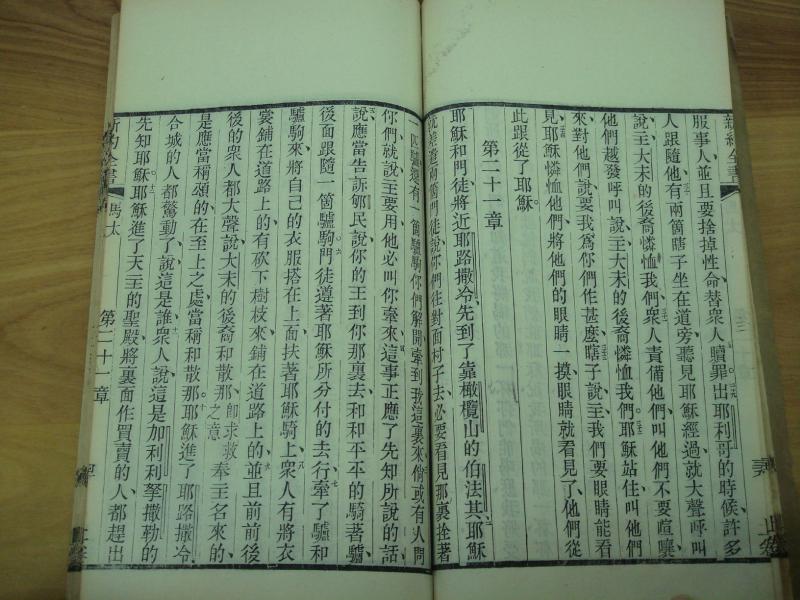 新約全書
服事人、並且要捨掉性命、替衆人贖罪、出耶利哥的時候、許多
人跟隨他、有兩箇瞎子坐在道旁、聽見耶穌經過、就大聲呼叫
說、主大未的後裔憐恤我們、衆人責備他們、叫他們不要喧嚷、
他們越發呼叫說、主大未的後裔憐恤我們、耶穌站住、叫他們
來、對他們說、要我爲你們作甚麽、瞎子說、主、我們要眼睛能看
見、耶穌憐恤他們、將他們的眼睛一摸、眼睛就看見了、他們從
此跟從了耶穌。
第二十一章
耶穌和門徒將近耶路撒冷、先到了靠橄欖山的伯法其、耶穌
就差遣兩箇門徒說、你們往對面村子去、必要看見那裏拴著
一匹驢、還有一箇驢駒、你們解開牽到我這裏來、倘或有人問
你們、就說主要用他、必叫你牽來、這事正應了先知所說的話
說、應當告訴郇民說、你的王到你那裏去、和和平平的騎著驢、
後面跟隨一箇驢駒、門徒遵著耶穌所分付的去行、牽了驢和
驢駒來、將自己的衣服搭在上面、扶著耶穌騎上、衆人有將衣
裳鋪在道路上的、有砍下樹枝來鋪在道路上的、並且前前後
後的衆人都大聲說、大未的後裔和散那、卽求救那之意奉主名來的、
是應當稱頌的、在至上之處當稱和散那、耶穌進了耶路撒冷、
合城的人都驚動了、說這是誰、衆人說、這是加利利拏撒勒的
先知耶穌、耶穌進了天主的聖殿、將裏面作買賣的人都趕出
新約全書 馬太 第二十一章